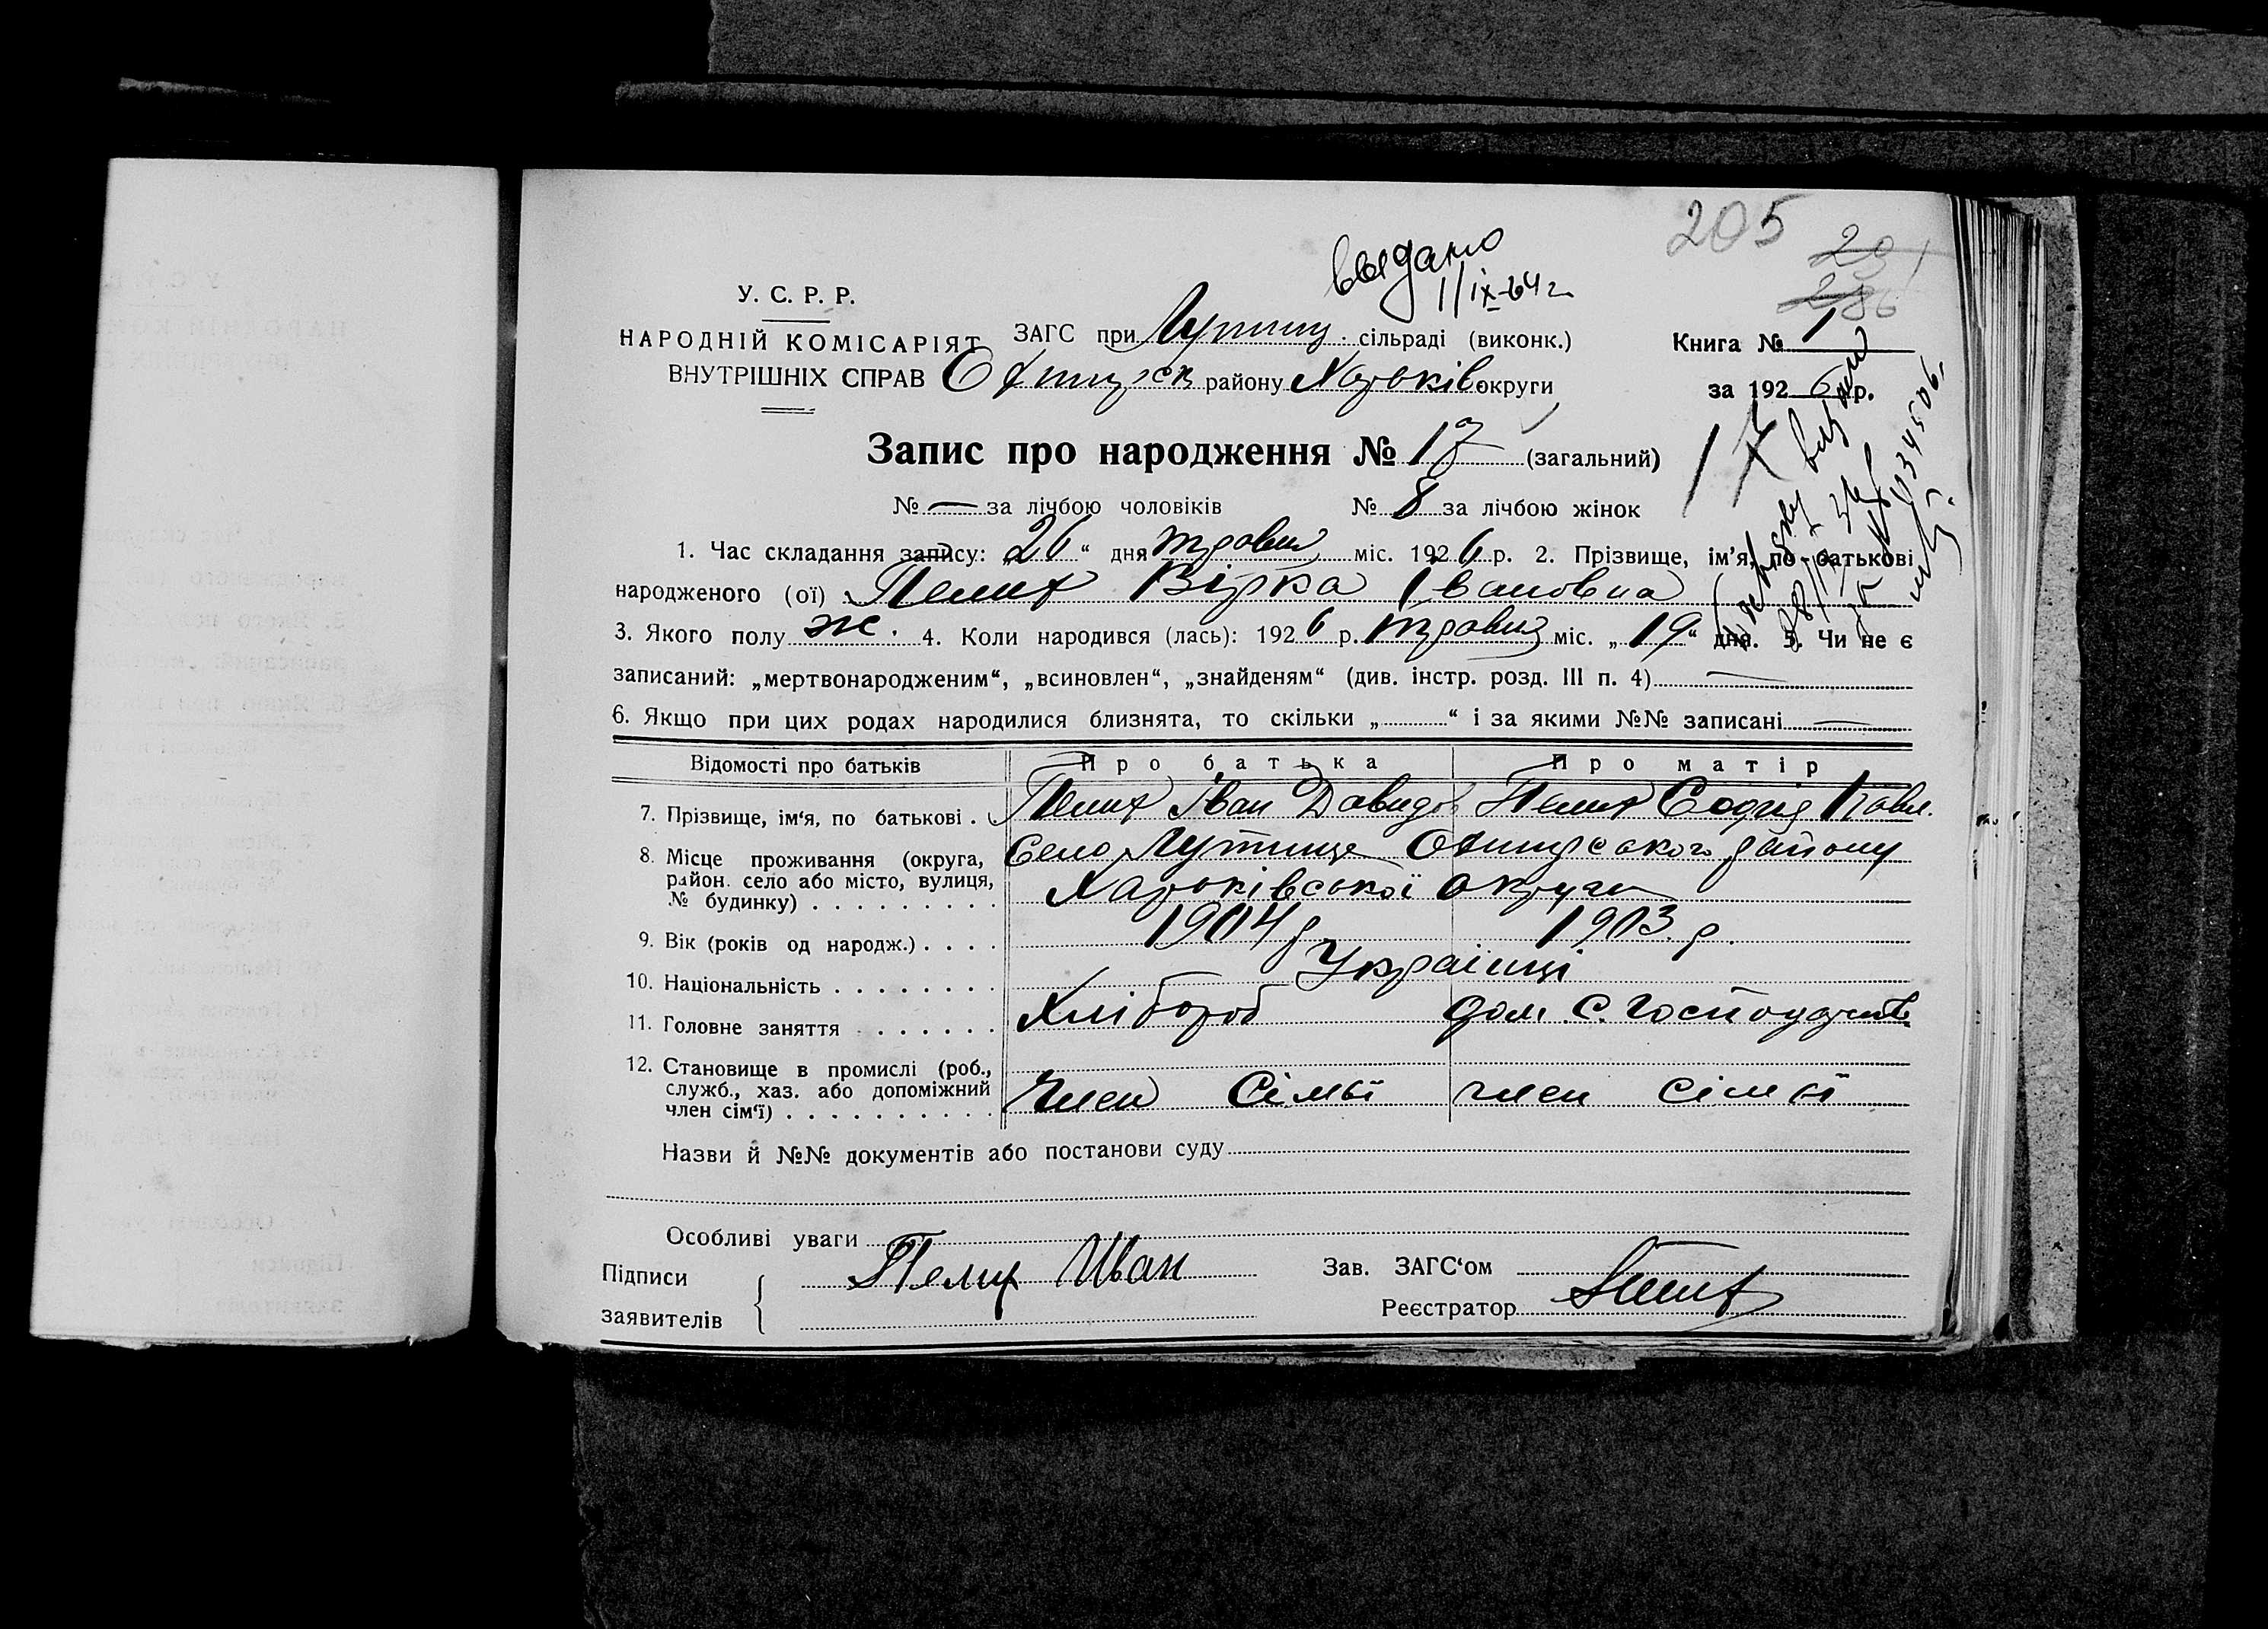 205
201
286
выдано
1/IX-64 г
У. С. Р. Р.
НАРОДНІЙ КОМІСАРІЯТ
ВНУТРІШНІХ СПРАВ
ЗАГС при Лутищ. сільраді (виконк.)
районy Харьків. округи
Книга № 1
за 1926 р.
Запис про народження № 17 (загальний)
17
№ — за лічбою чоловіків № 8 за лічбою жінок
1. Час складання запису: 26 “ дня травня міс. 1926 р. 2. Прізвище, ім'я, по-батькові
народженого (ої) Пелих Вірка Івановна
3. Якого полу ж. 4. Коли народився (лась): 1926 р. травня міс. „ 19 “ дня. 5. Чи не є
записаний: „мертвонародженим“, „всиновлен“, „знайденям“ (див. інстр. розд. III п. 4) —
6. Якщо при цих родах народилися близнята, то скільки „ “ і за якими №№ записані —
Відомості про батьків Про батька Про матір
7. Прізвище, ім'я, по батькові . Пелих Іван Давидов Пелих София Павл.
8. Місце проживання (округа, район. село або місто, вулиця, № будинку) . . . . . . . . . Село Лутище району
Харьківської округи
9. Вік (років од народж.) . . . . 1904 р 1903 р.
10. Національність . . . . . . . . Українці
11. Головне заняття . . . . . . Хлібороб дом. с. господарств
12. Становище в промислі (роб., служб., хаз. або допоміжний член сім'ї) . . . . . . . . . . Член Сімьї член сімьї
Назви й №№ документів або постанови суду
Особливі уваги
Підписи
заявителів
Пелих Иван
Зав. ЗАГС'ом
Реєстратор